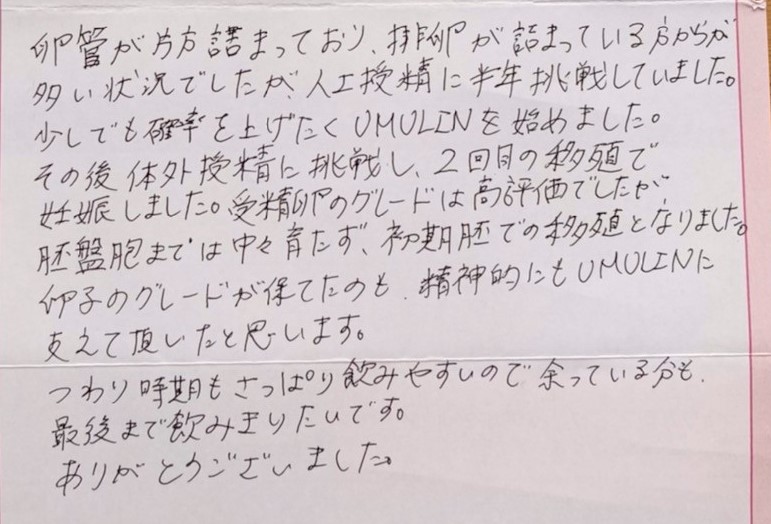 卵管が片方詰まっており、排卵が詰まっている方からが
多い状況でしたが、人工授精に半年挑戦していました。
少しでも確率を上げたくUMULINを始めました。
その後体外授精に挑戦し、2回目の移殖で
妊娠しました。受精卵のグレードは高評価でしたが、
胚盤胞までは中々育たず、初期胚での移殖となりました。
卵子のグレードが保てたのも、精神的にもUMULINに
支えて頂いたと思います。
つわり時期もさっぱり飲みやすいので余っている分も、
最後まで飲みきりたいです。
ありがとうございました。